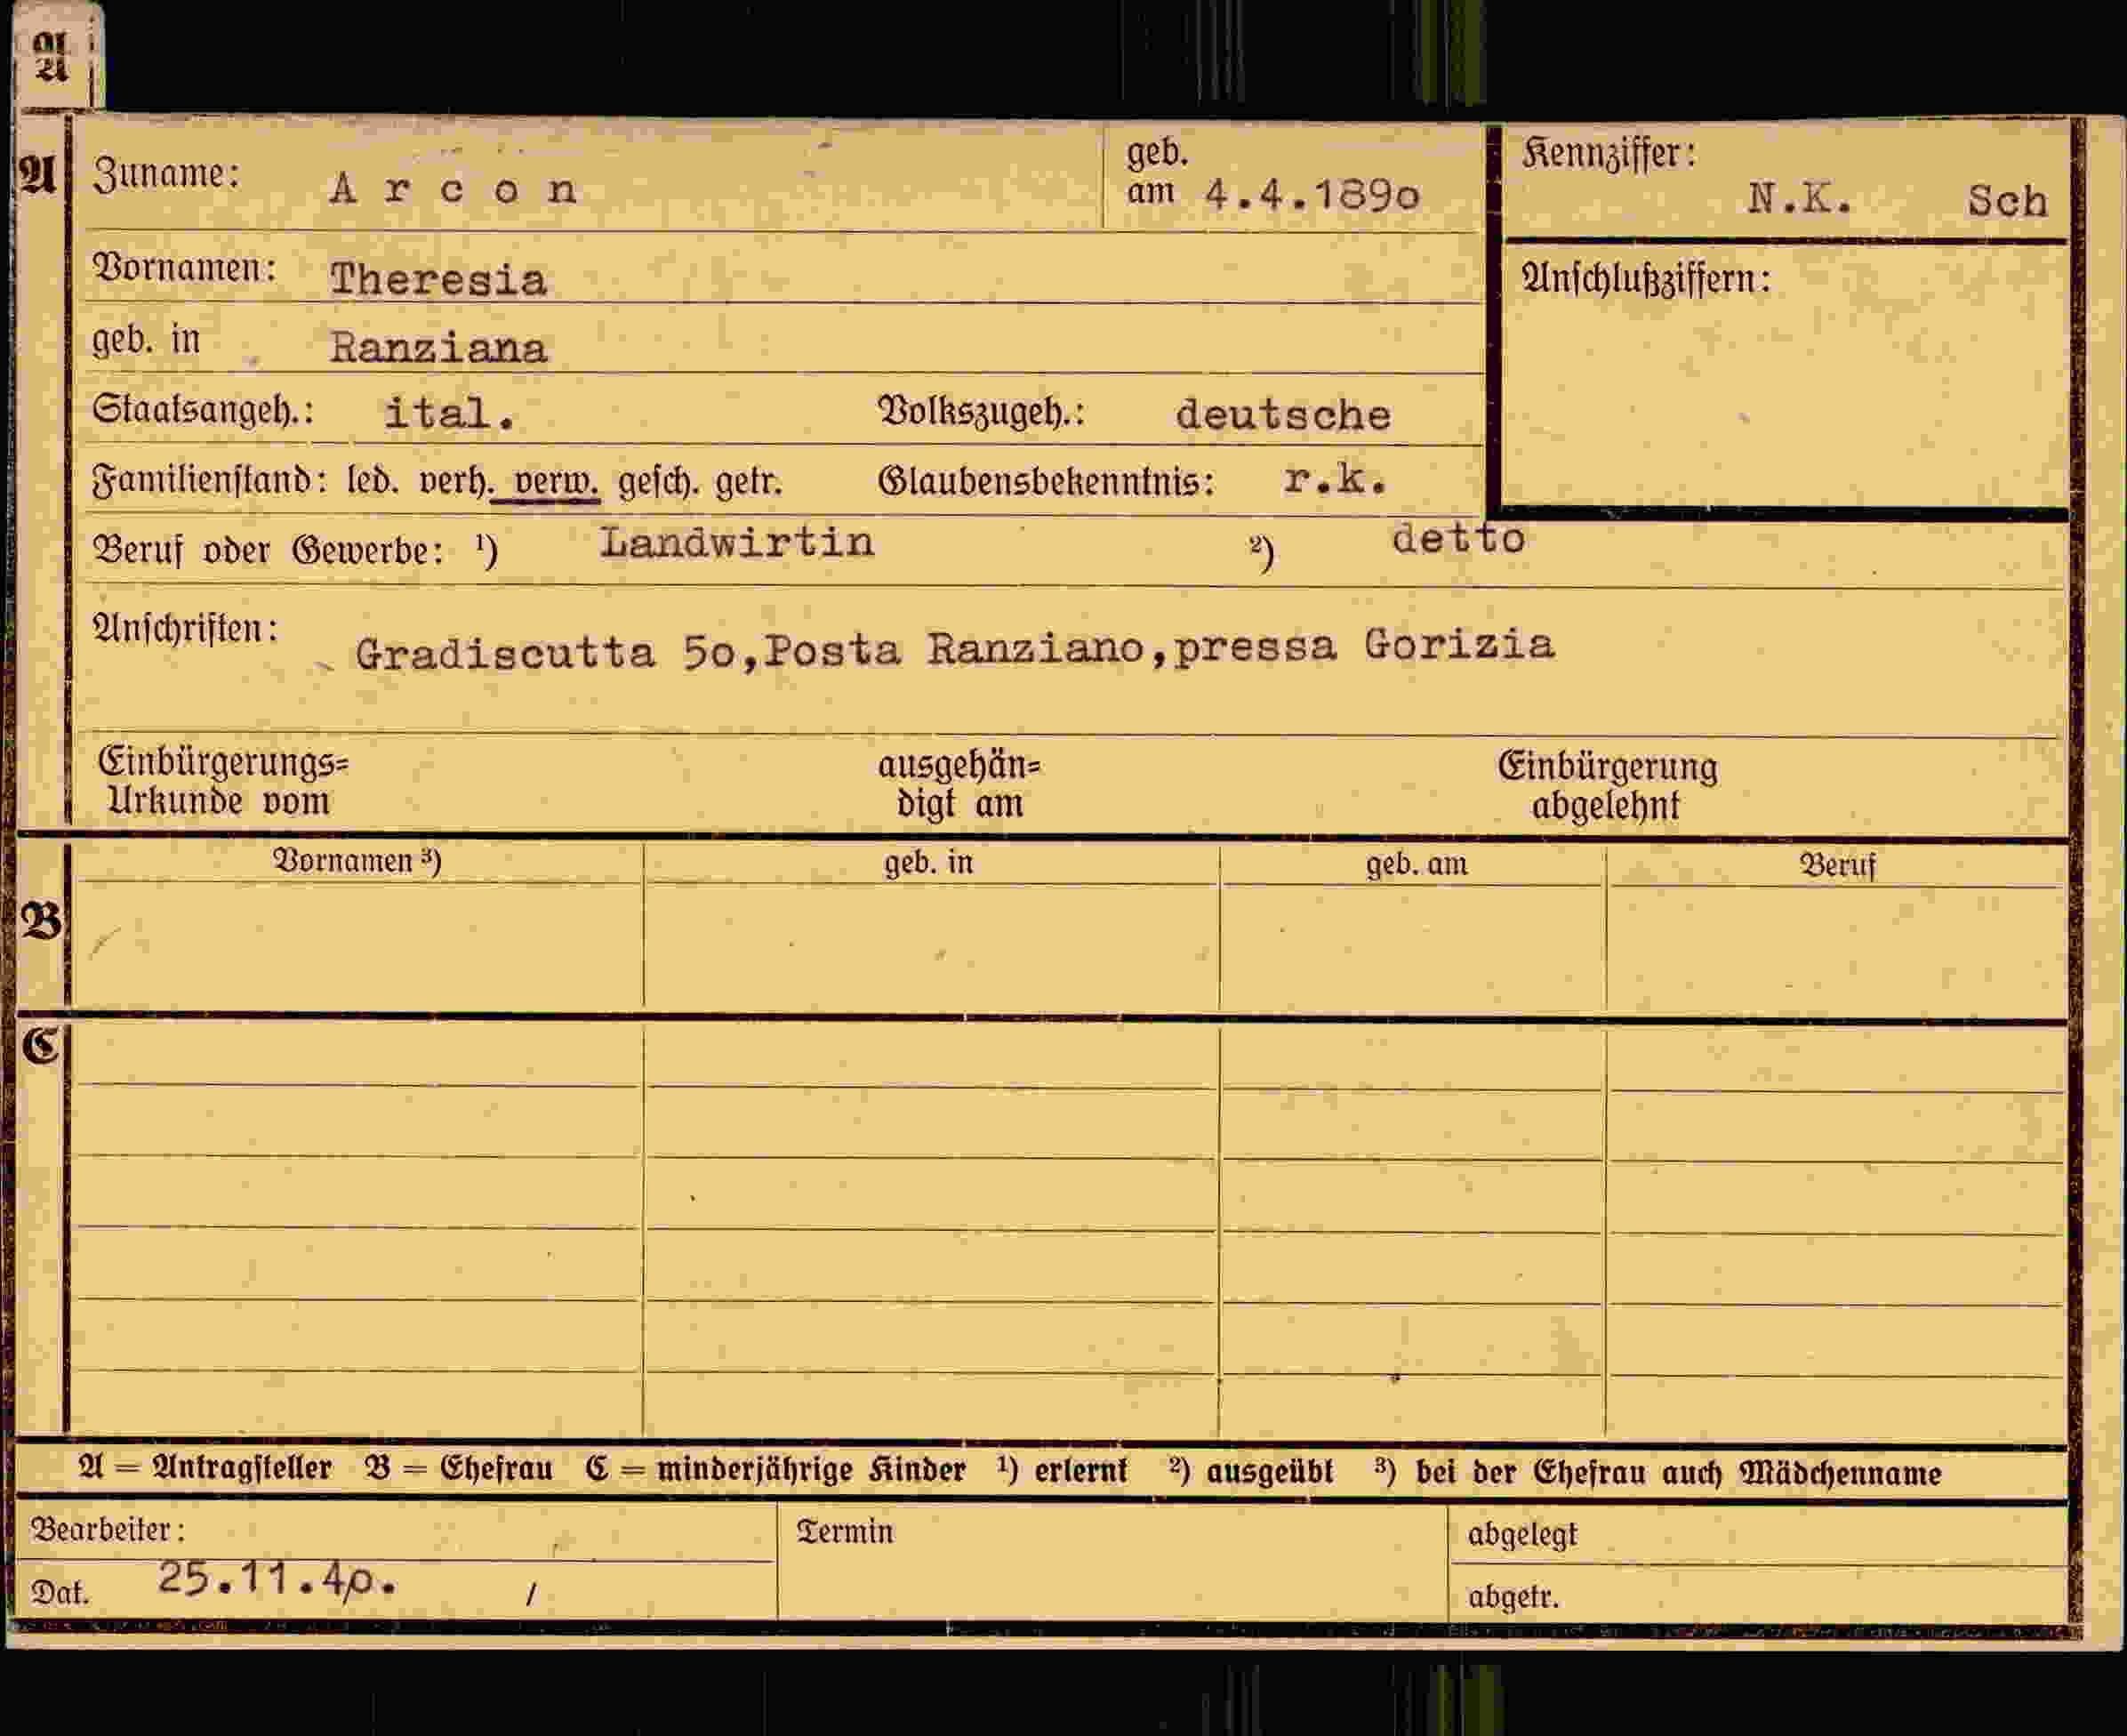 A
A
Zuname: Arcon geb. am 4.4.1890 Kennziffer: N.K. Sch
Vornamen: Theresia Anschlußziffern:
geb. in Ranziana
Staatsangeh.: ital. Volkszugeh.: deutsche
Familienstand: led. verh. verw. gesch. getr. Glaubensbekenntnis: r.k.
Beruf oder Gewerbe: ¹) Landwirtin ²) detto
Anschriften: Gradiscutta 50,Posta Ranziano,pressa Gorizia
Einbürgerungs= ausgehän= Einbürgerung
Urkunde vom digt am abgelehnt
Vornamen ³) geb. in geb. am Beruf
B
C
A = Antragsteller B = Ehefrau C = minderjährige Kinder ¹) erlernt ²) ausgeübt ³) bei der Ehefrau auch Mädchenname
Bearbeiter: Termin abgelegt
Dat. 25.11.40. / abgetr.